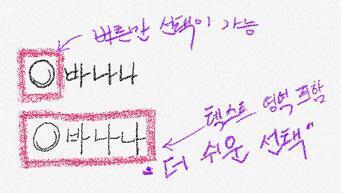 버튼만 선택이 가능
바나나
바나나
텍스트 영역 포함
"더 쉬운 선택"